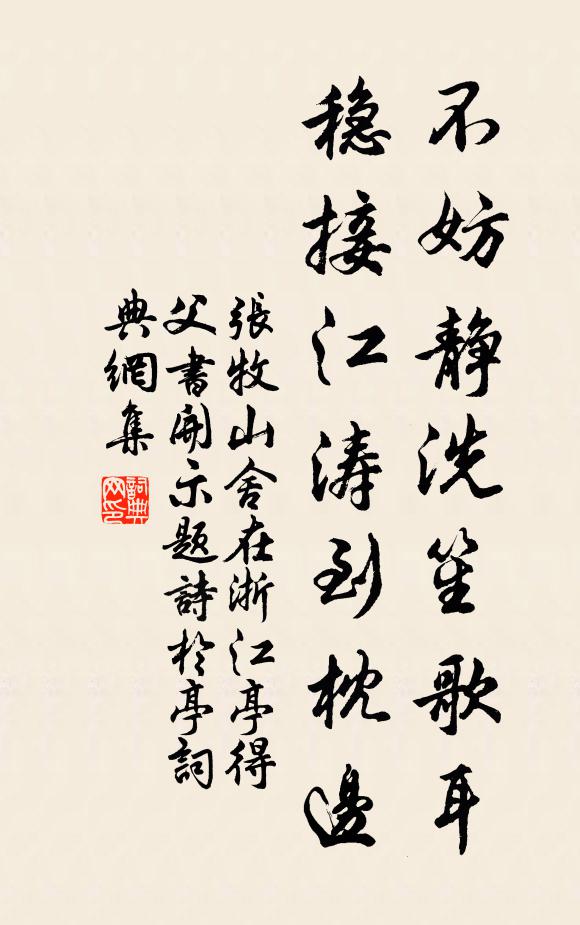 不妨靜洗笙歌耳
穩接江濤到枕邊
張牧山舍在浙江亭得
父書開示題詩於亭詞
典網集
詞典网印